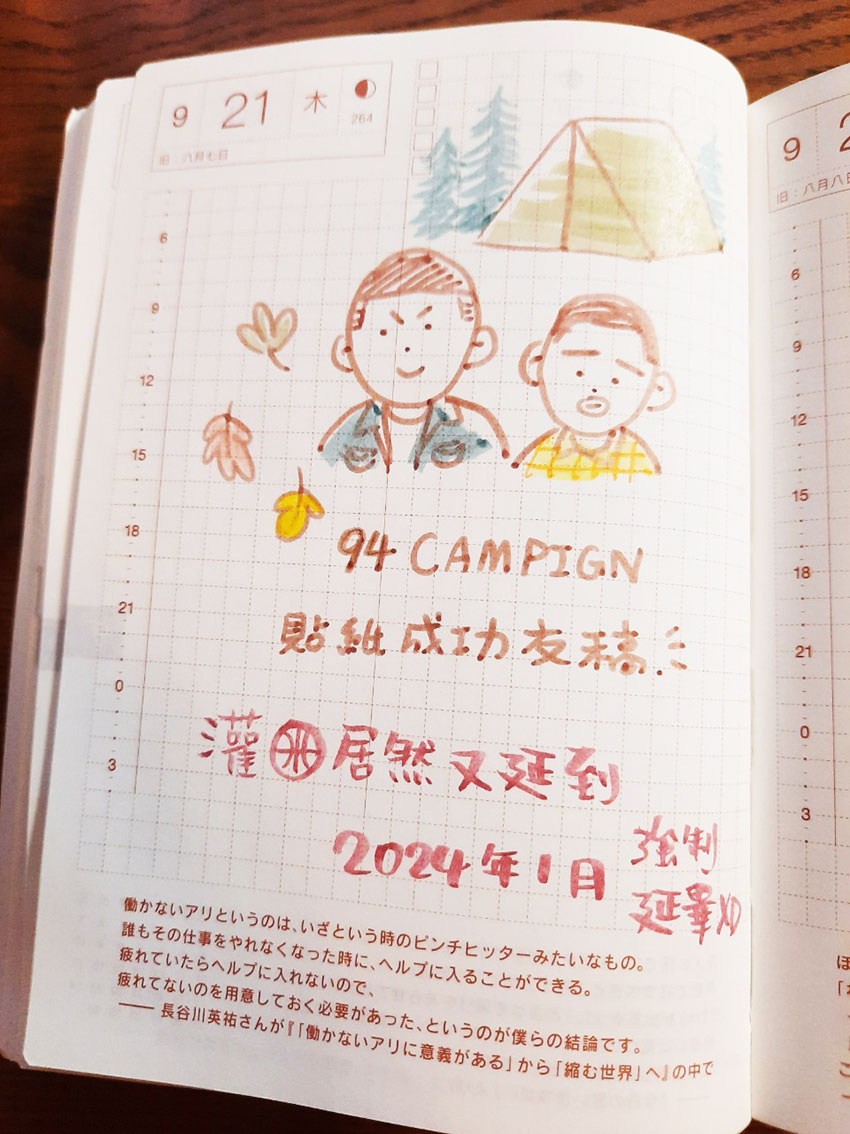 9 21 木
264
旧:八月七日
6
9
12
15
18
21
0
3
94 CAMPIGN
貼紙成功交稿
灌居然又延到
2024年1月
強制
延畢XD
働かないアリというのは、いざという時のピンチヒッターみたいなもの。
誰もその仕事をやれなくなった時に、ヘルプに入ることができる。
疲れていたらヘルプに入れないので、
疲れてないのを用意しておく必要があった、というのが僕らの結論です。
── 長谷川英祐さんが『「働かないアリに意義がある」から「縮む世界」へ』の中で
9 2
旧:八月八日
6
9
12
15
18
21
0
3
ほ